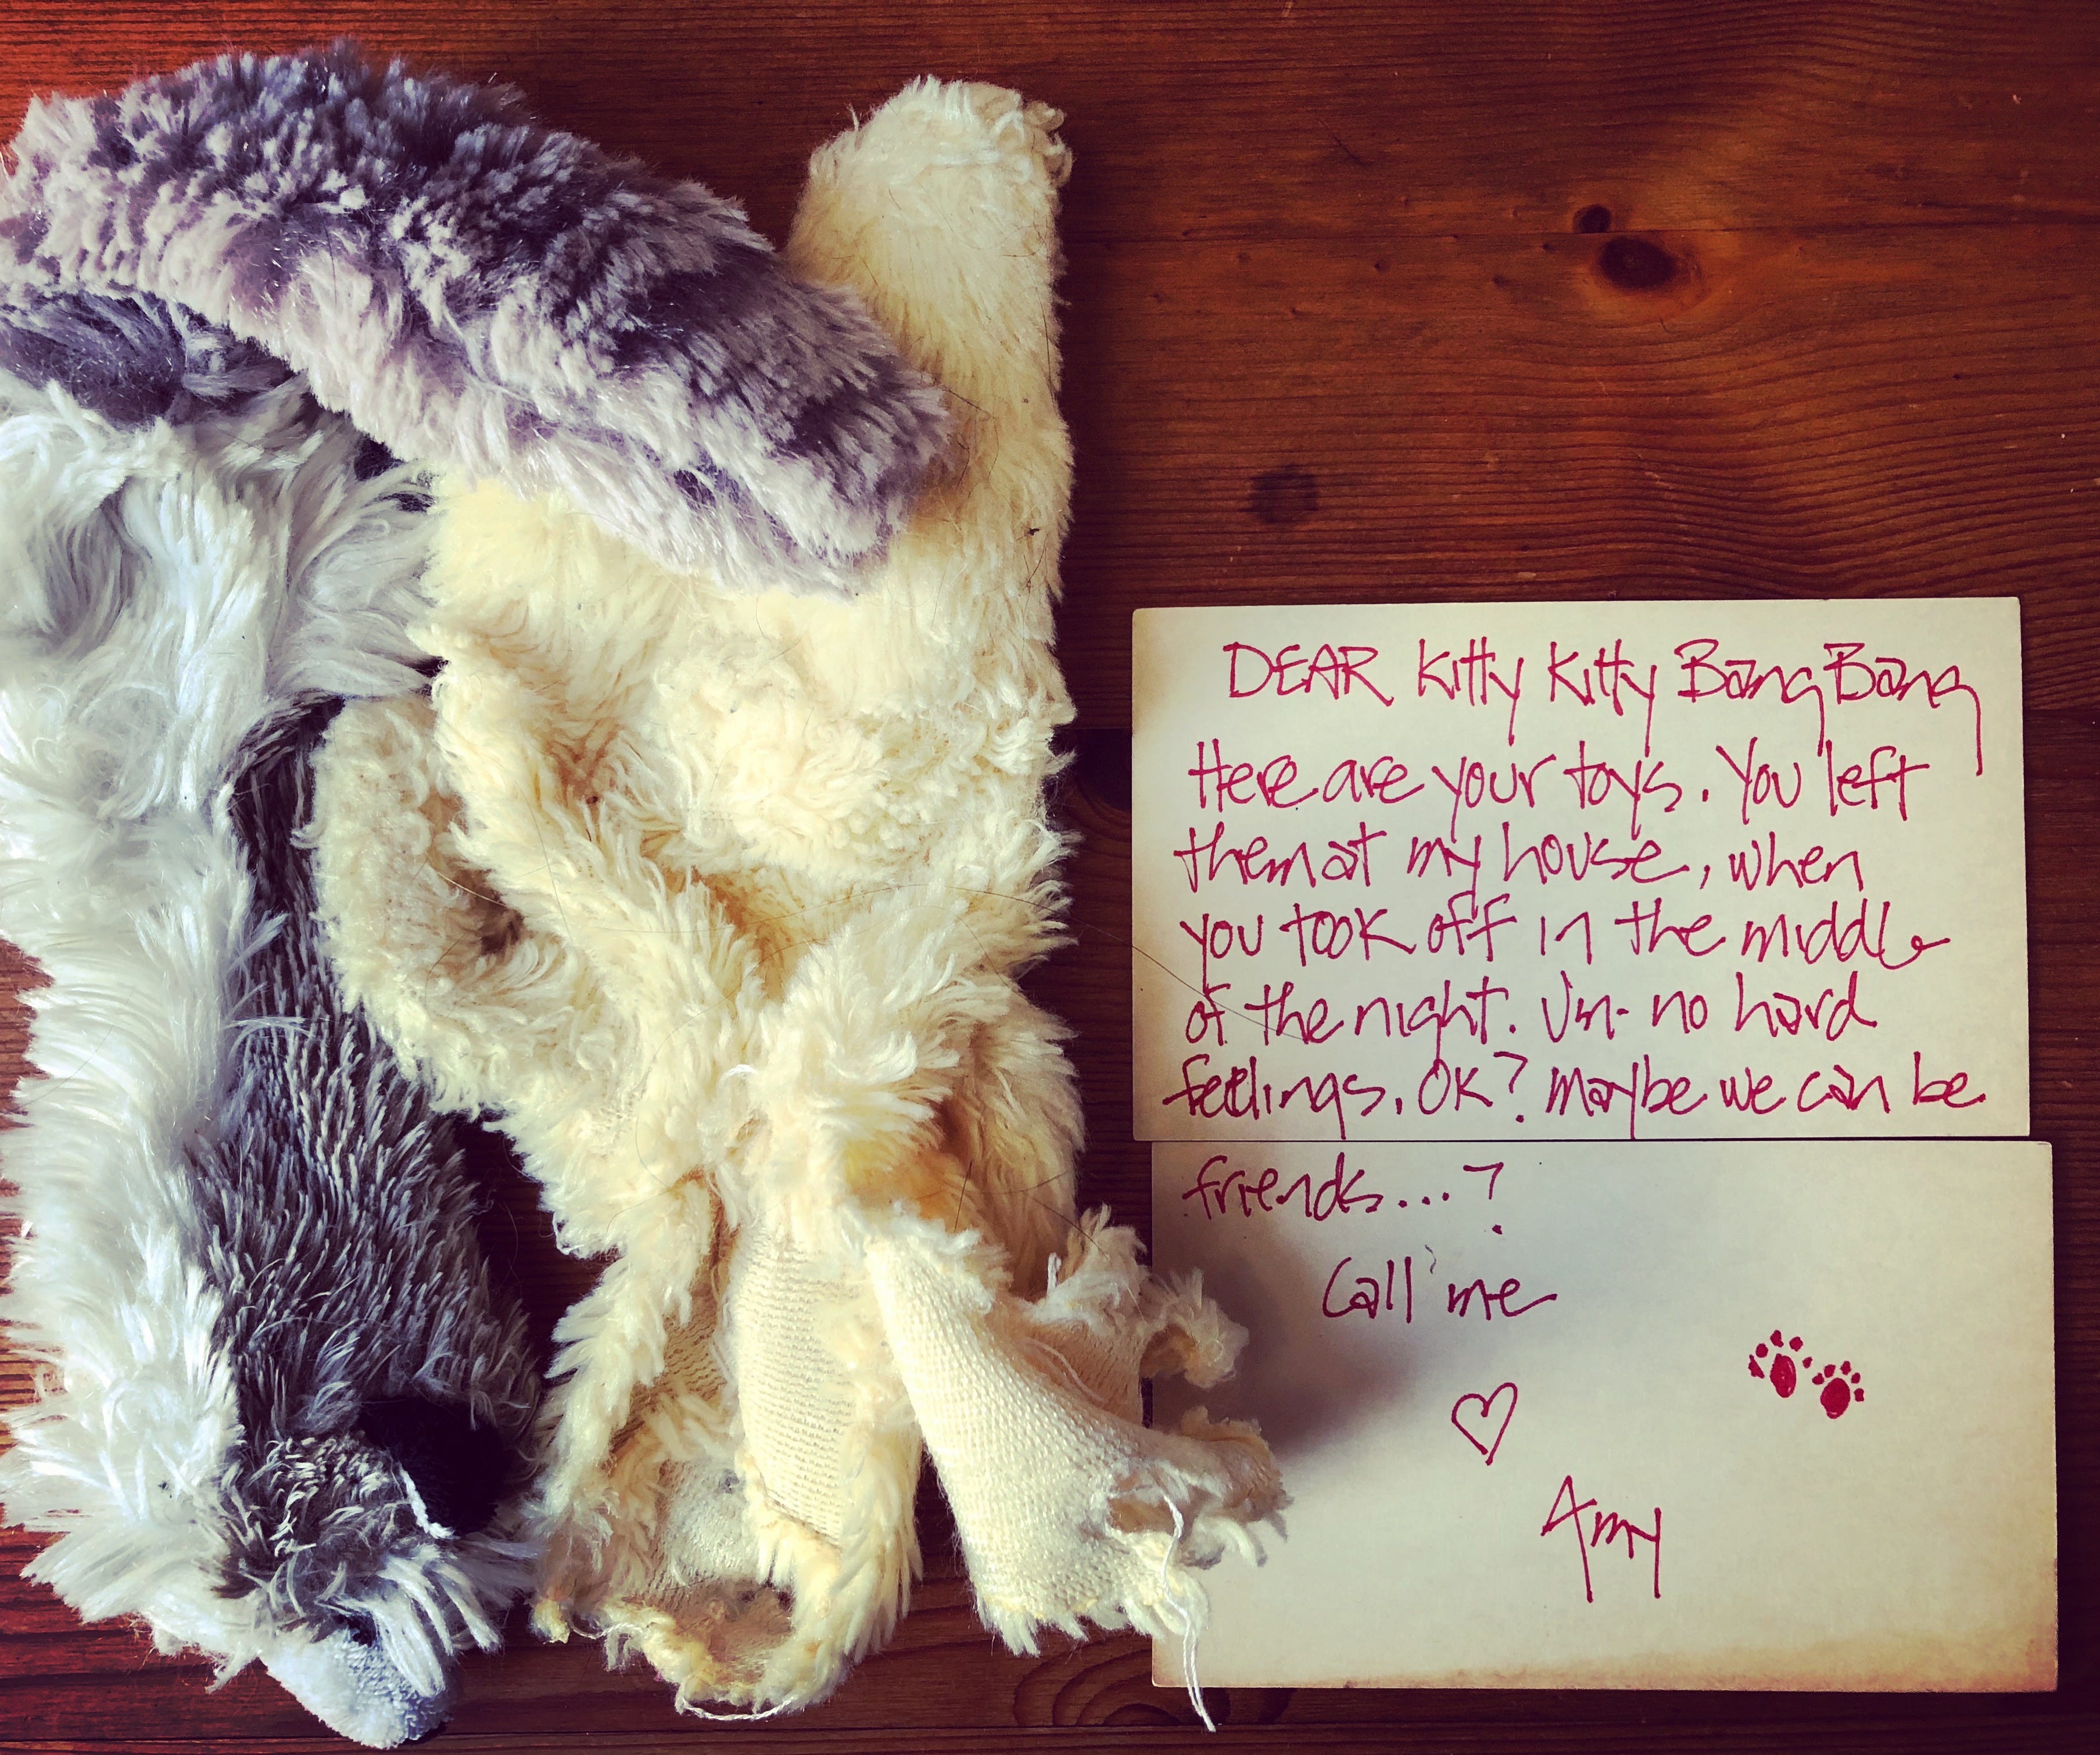 DEAR Kitty Kitty Bang Bang
Here are your toys. You left
them at my house, when
you took off in the middle
of the night. Um- no hard
feelings, OK? Maybe we can be
friends...?
Call me
Amy